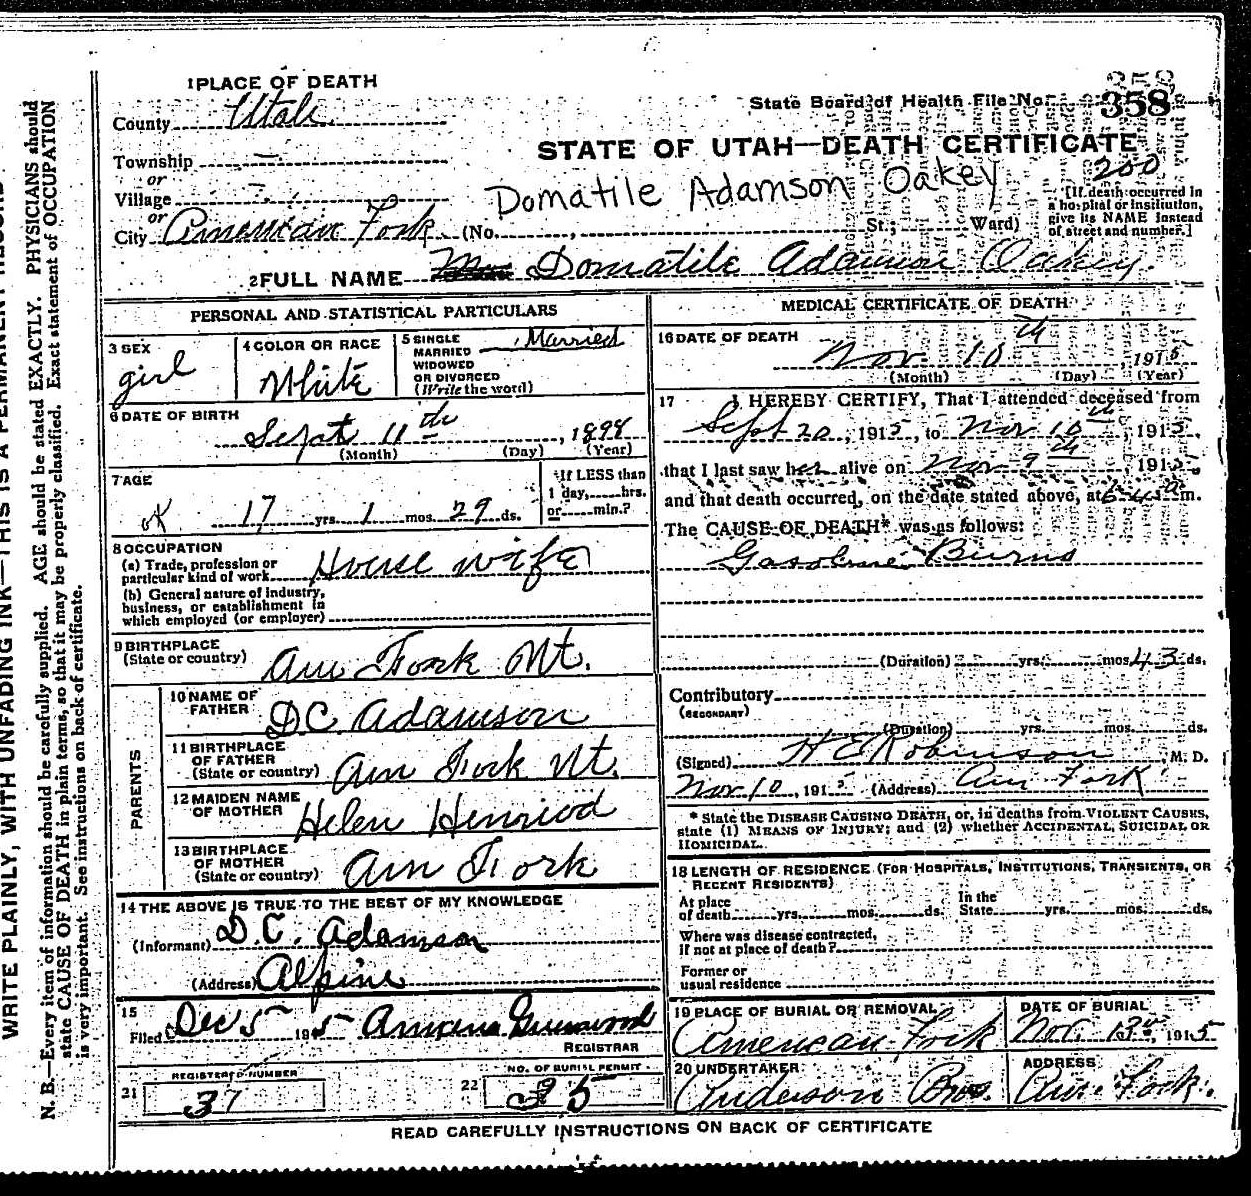 WRITE PLAINLY, WITH UNFADING INK—THIS IS A PERMANENT RECORD
N. B.—Every item of information should be carefully supplied. AGE should be stated EXACTLY. PHYSICIANS should
state CAUSE OF DEATH in plain terms, so that it may be properly classified. Exact statement of OCCUPATION
is very important. See instructions on back of certificate.
1 PLACE OF DEATH
County Utah
State Board of Health File No. 358
Township —
STATE OF UTAH—DEATH CERTIFICATE
or
Village
Domatile Adamson Oakey
200
or
City American Fork (No. , St.; Ward)
[If death occurred in
a hospital or institution,
give its NAME instead
of street and number.]
2 FULL NAME Domatile Adamson Oakey.
PERSONAL AND STATISTICAL PARTICULARS
3 SEX
girl
4 COLOR OR RACE
White
5 SINGLE
MARRIED
WIDOWED
OR DIVORCED
(Write the word)
Married
6 DATE OF BIRTH
Sept 11th, 1898
(Month) (Day) (Year)
7 AGE
If LESS than
1 day, hrs.
or min.?
OK 17 yrs. 1 mos. 29 ds.
8 OCCUPATION
(a) Trade, profession or
particular kind of work House wife
(b) General nature of industry,
business, or establishment in
which employed (or employer)
9 BIRTHPLACE
(State or country) Am Fork Ut.
PARENTS
10 NAME OF
FATHER D C Adamson
11 BIRTHPLACE
OF FATHER
(State or country) Am Fork Ut.
12 MAIDEN NAME
OF MOTHER Helen Henriod
13 BIRTHPLACE
OF MOTHER
(State or country) Am Fork
14 THE ABOVE IS TRUE TO THE BEST OF MY KNOWLEDGE
(Informant) D. C. Adamson
(Address) Alpine
15
Filed Dec 5 1915
REGISTRAR
REGISTERED NUMBER
21 37
NO. OF BURIAL PERMIT
22 35
MEDICAL CERTIFICATE OF DEATH
16 DATE OF DEATH
Nov 10th, 1915
(Month) (Day) (Year)
17 I HEREBY CERTIFY, That I attended deceased from
Sept 20, 1915, to Nov 10th, 1915,
that I last saw her alive on Nov 9th, 1915,
and that death occurred, on the date stated above, at m.
The CAUSE OF DEATH* was as follows:
Gasoline Burns
(Duration) yrs. mos. 43 ds.
Contributory
(SECONDARY)
(Duration) yrs. mos. ds.
(Signed) H E Robinson, M. D.
Nov 10, 1915 (Address) Am Fork
* State the DISEASE CAUSING DEATH, or, in deaths from VIOLENT CAUSES,
state (1) MEANS OF INJURY; and (2) whether ACCIDENTAL, SUICIDAL OR
HOMICIDAL.
18 LENGTH OF RESIDENCE (FOR HOSPITALS, INSTITUTIONS, TRANSIENTS, OR
RECENT RESIDENTS)
At place
of death yrs. mos. ds.
In the
State yrs. mos. ds.
Where was disease contracted,
if not at place of death?
Former or
usual residence
19 PLACE OF BURIAL OR REMOVAL
American Fork
DATE OF BURIAL
Nov. 13th, 1915
20 UNDERTAKER
Anderson Bros.
ADDRESS
Am. Fork.
READ CAREFULLY INSTRUCTIONS ON BACK OF CERTIFICATE